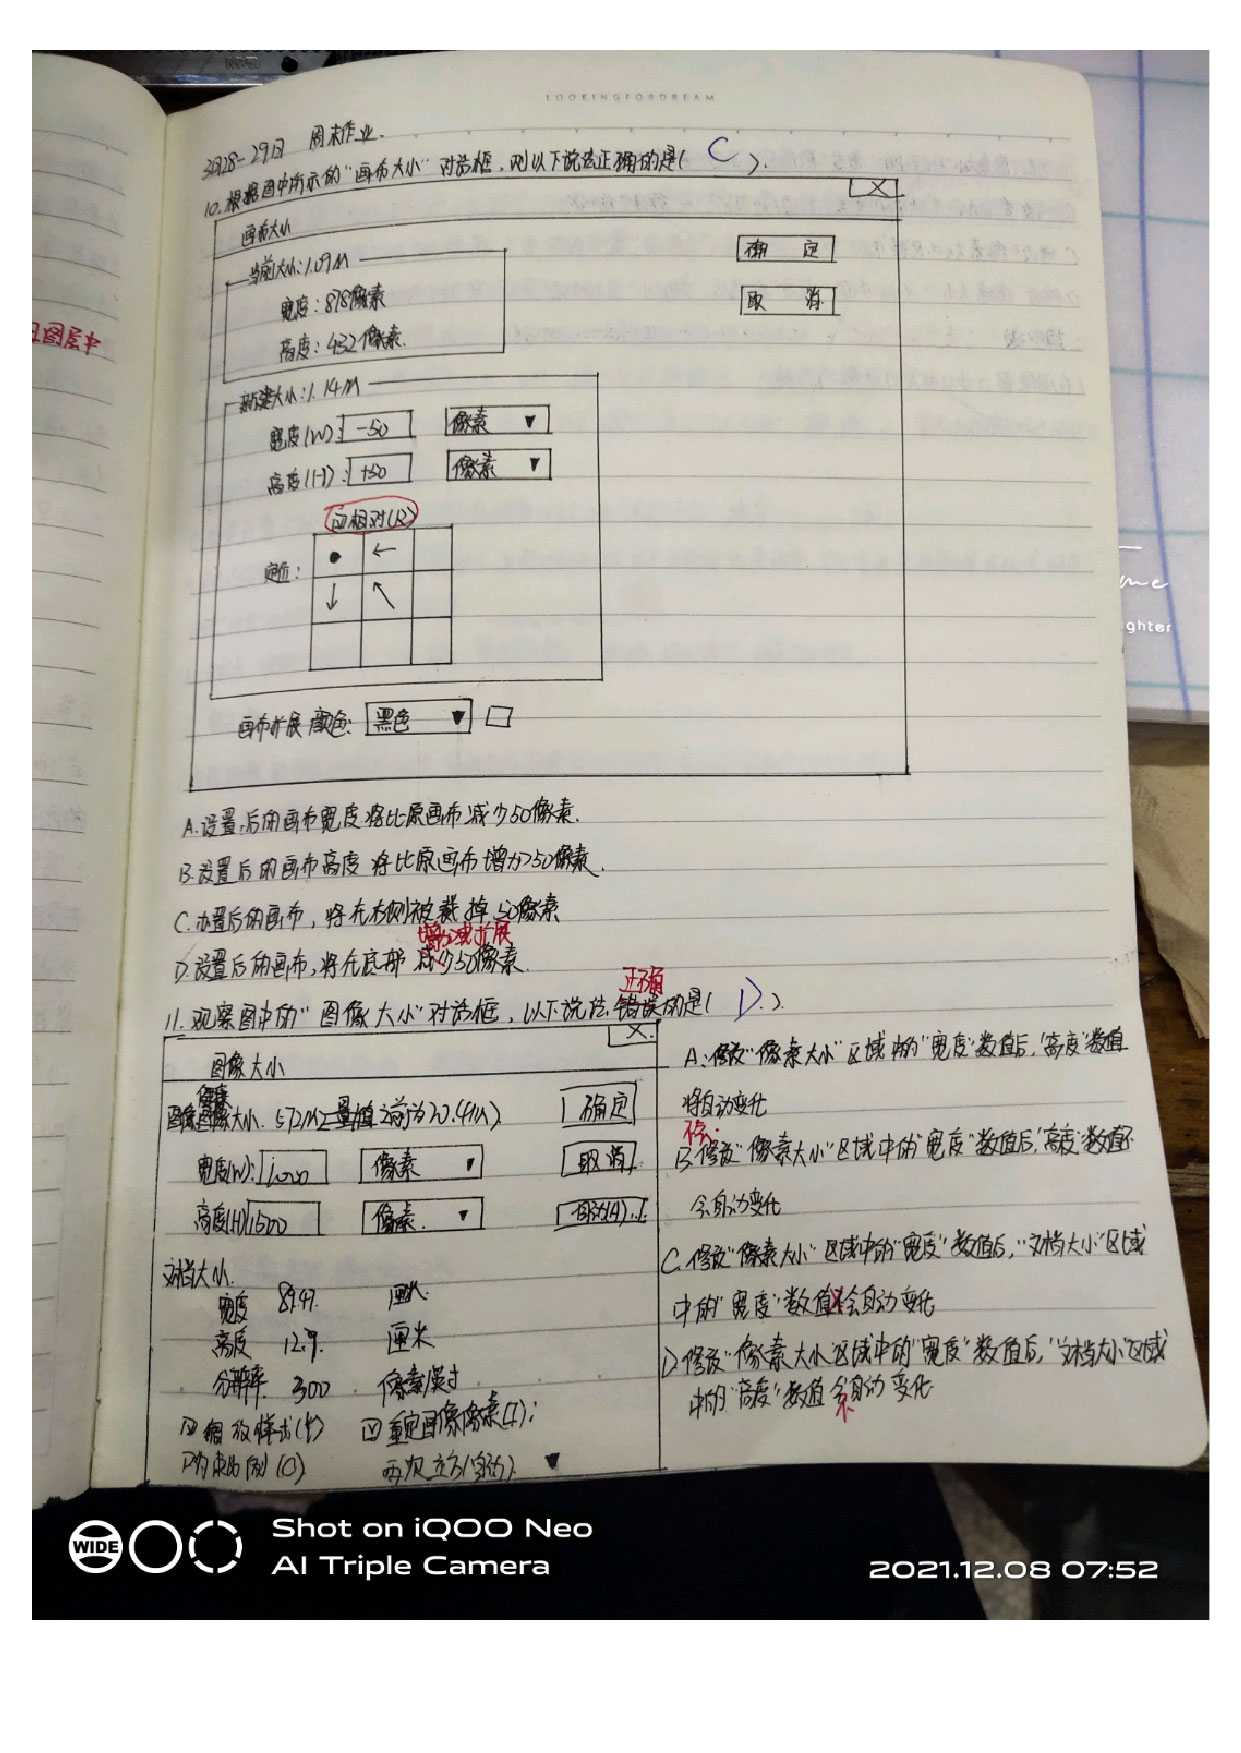 LOOKINGFORDREAM
28-29日 周末作业.
10.根据图中所示的“画布大小”对话框,则以下说法正确的是( C ).
X
画布大小
当前大小:1.09M
确 定
宽度:878像素
取 消
高度:432像素.
且图层中
新建大小:1.14M
宽度(W): -50 像素 ▼
高度(H): +50 像素 ▼
相对(R)
定位:
画布扩展颜色: 黑色 ▼
A.设置后的画布宽度将比原画布减少50像素.
B.设置后的画布高度将比原画布增加50像素.
C.设置后的画布,将在右侧被裁掉50像素
增加或扩展
D.设置后的画布,将在底部减少50像素.
正确
11.观察图中的“图像大小”对话框,以下说法错误的是( D ).
X
图像大小
像素
图像大小. 572M(之前为20.4M)
确定
宽度(W): 1000 像素 ▼
取消
高度(H) 1500 像素. ▼
自动(A)..
文档大小.
宽度 8.47. 厘米.
高度 12.7. 厘米
分辨率 300 像素/英寸
缩放样式(Y) 重定图像像素(I):
约束比例(O) 两次立方(自动) ▼
A.修改“像素大小”区域中的“宽度”数值后,“高度”数值
将自动变化
B.修改“像素大小”区域中的“宽度”数值后,“高度”数值不
会自动变化
C.修改“像素大小”区域中的“宽度”数值后,“文档大小”区域
中的“宽度”数值不会自动变化
D.修改“像素大小”区域中的“宽度”数值后,“文档大小”区域
中的“高度”数值会自动变化
不
me
ghter
WIDE
Shot on iQOO Neo
AI Triple Camera
2021.12.08 07:52